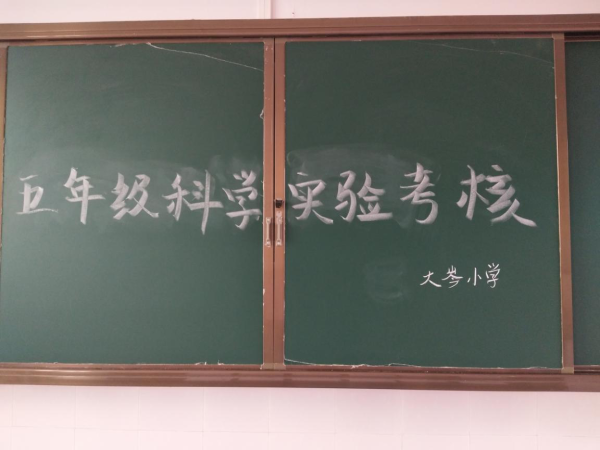 五年级科学实验考核
大岑小学